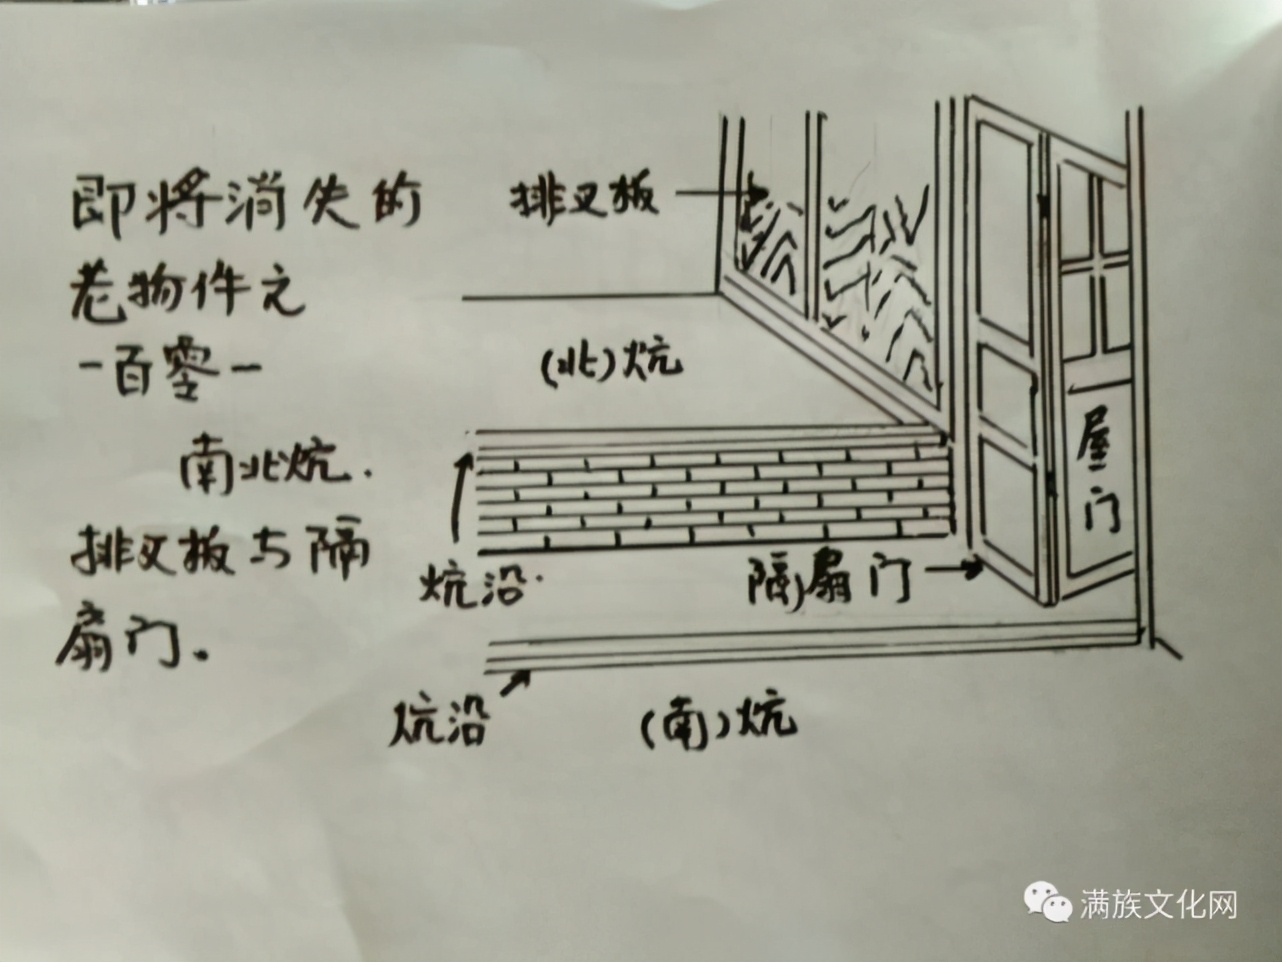 即将消失的
老物件之
一百零一
南北炕.
排叉板与隔
扇门.
排叉板
(北)炕
屋门
炕沿
隔扇门
炕沿
(南)炕
满族文化网